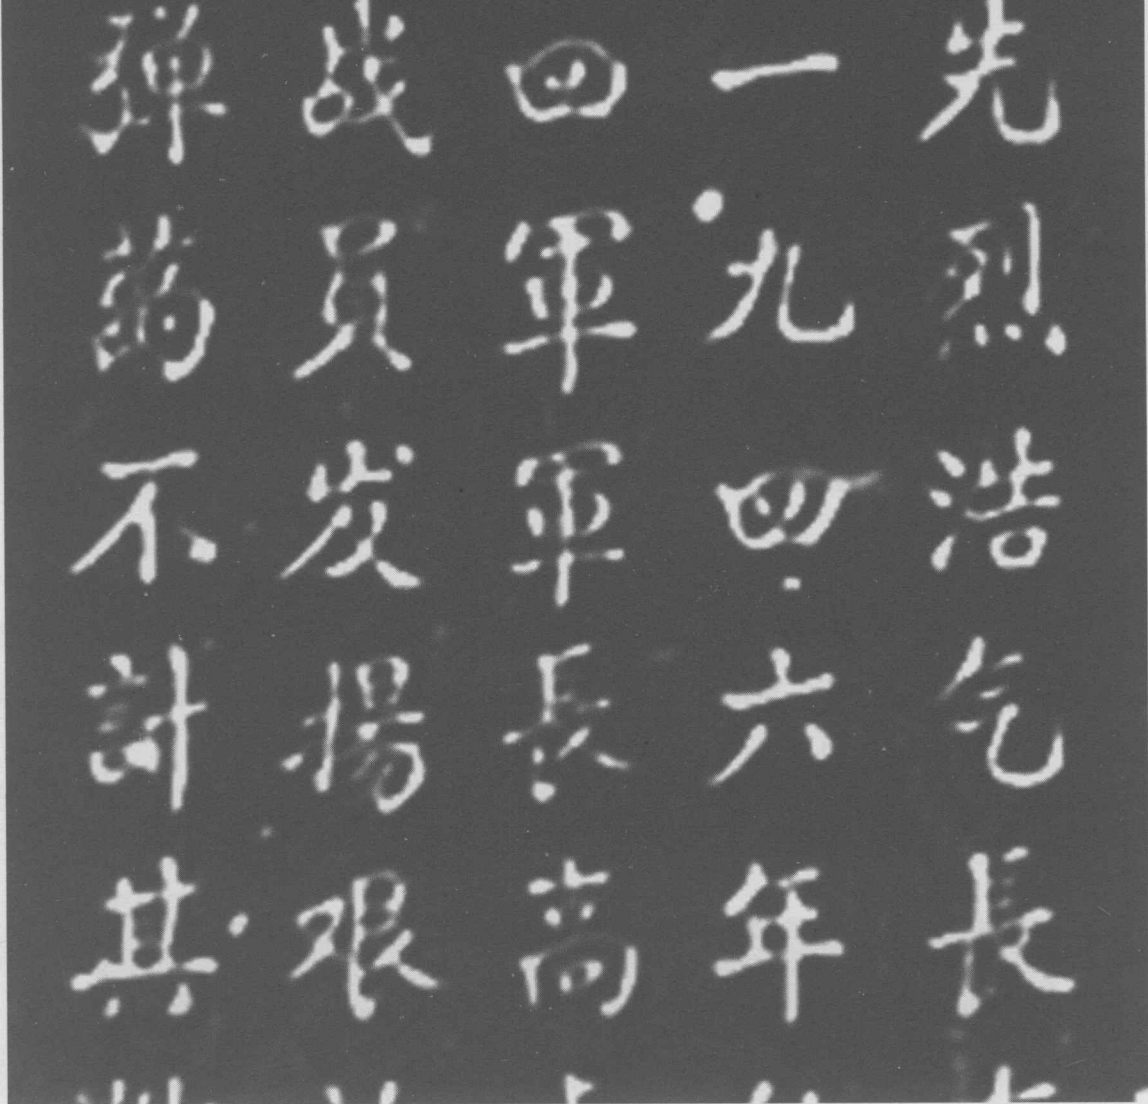 先烈浩气長
一九四六年
四軍軍長高
战員发揚艰
弹药不計其